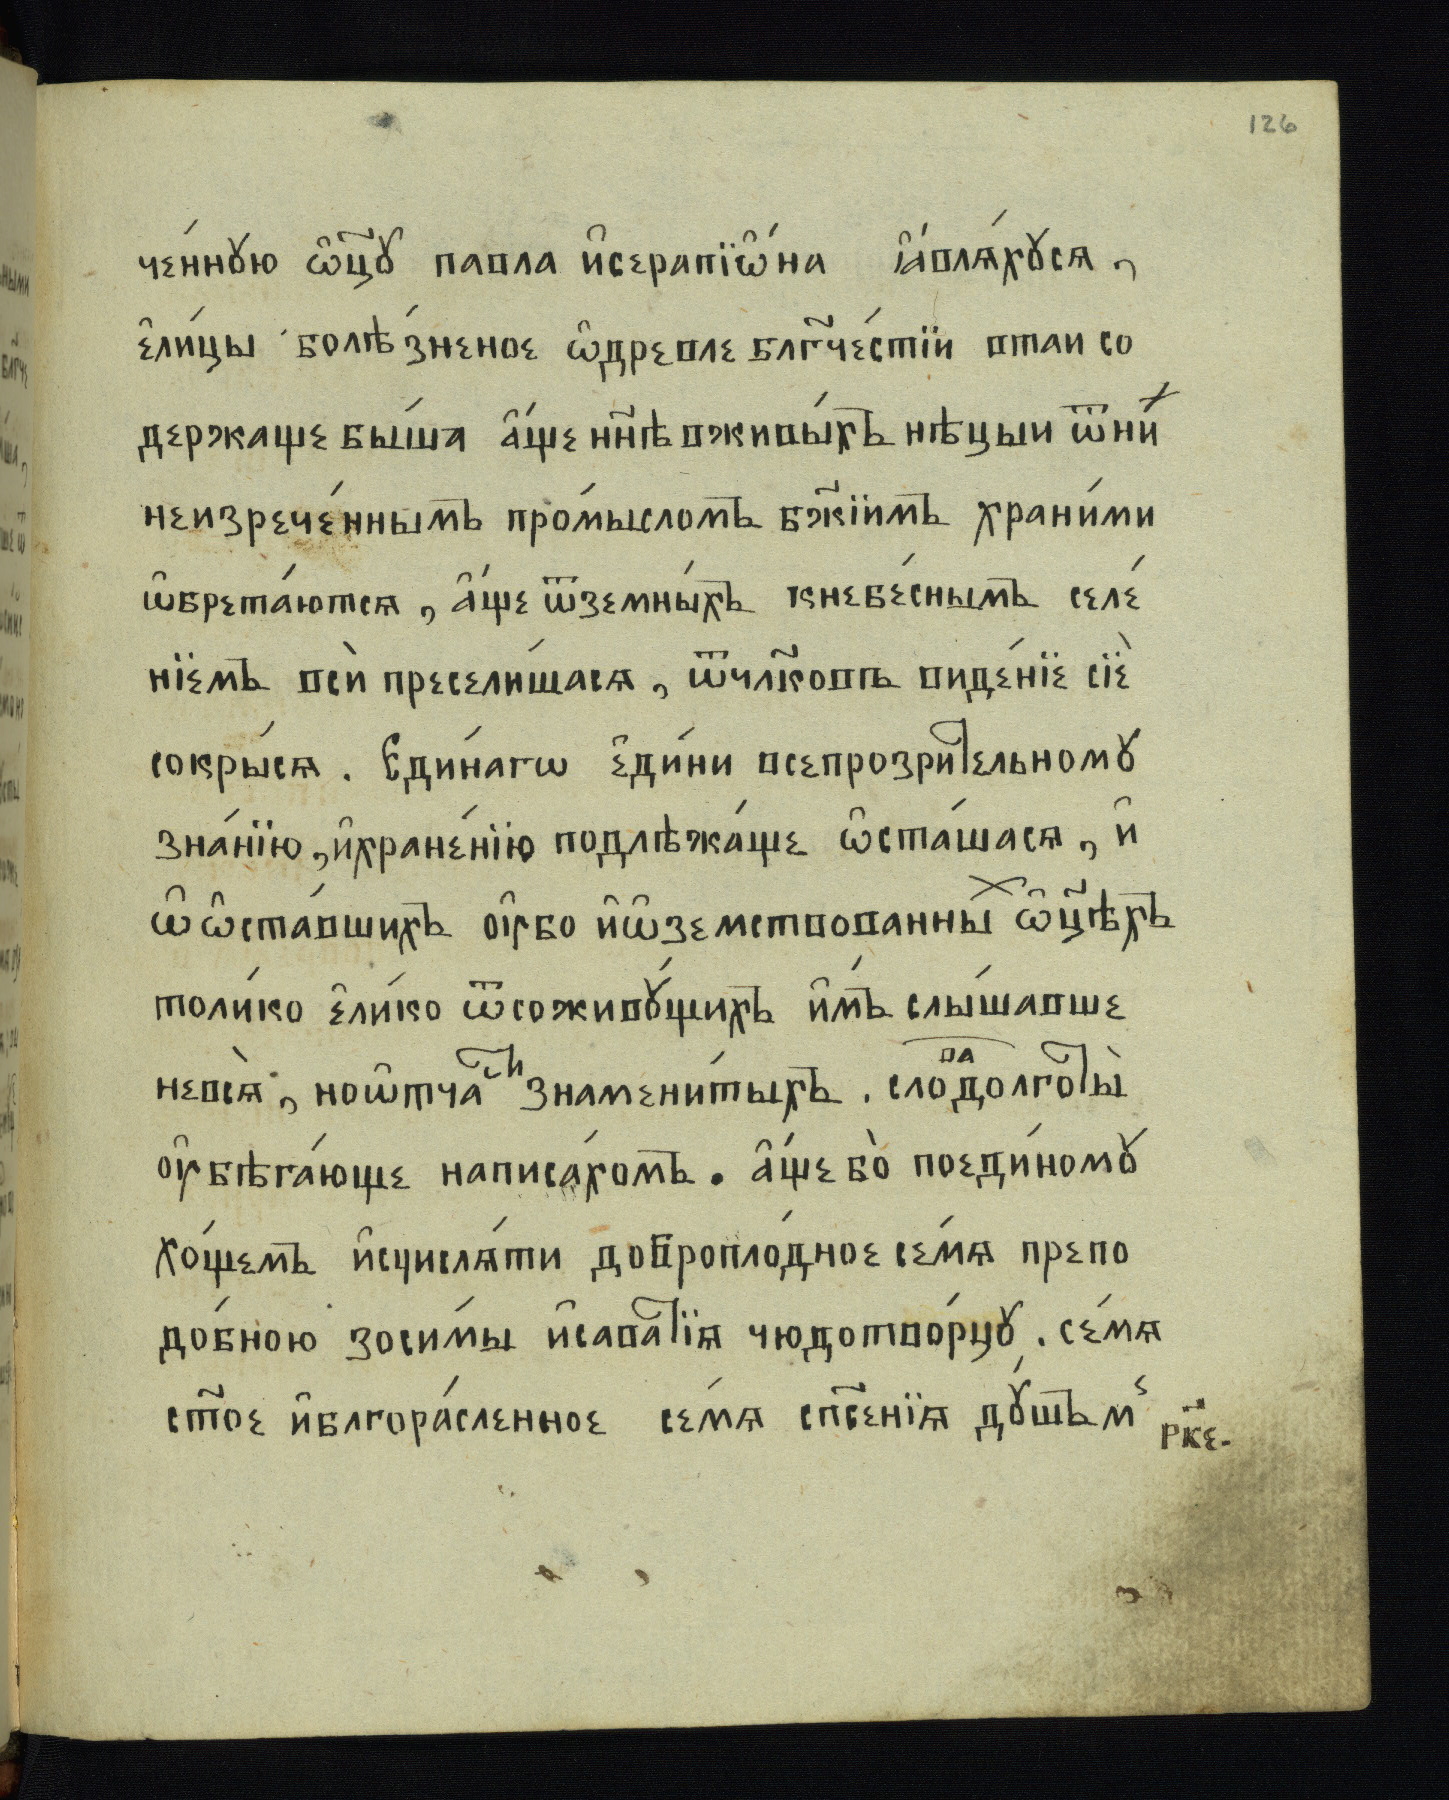 126
че́ннꙋю ѡ҆ц҃ꙋ павла и҆серапїѡ́на ꙗ҆влѧ́хꙋсѧ,
є҆ли́цы болѣ́зненое ѡ҆древле благⷭ҇че́стїи втаи со
держаще бы́ша а҆́ще нн҃ѣ вживы́хъ нѣцыи ѿни́х
неизрече́ннымъ про́мысломъ бж҃їимъ храни́ми
ѡ҆брета́ютсѧ, а҆́ще ѿземны́хъ кнебе́снымъ селе́
нїемъ всѝ пресели́шасѧ, ѿчл҃ковъ виде́нїе сїѐ
сокры́сѧ. Еди́нагѡ є҆ди́ни всепрозрителⷮьномꙋ
зна́нїю, и҆хране́нїю подлѣжа́ще ѡ҆ста́шасѧ, и҆
ѡ҆ ѡ҆ста́вшихъ ᲂу҆бо и҆ѡ҆земствованныⷯ ѡ҆ц҃ѣхъ
толи́ко є҆ли́ко ѿсоживꙋ́щихъ и҆́мъ слы́шавше
невсѧ̀, ноѿтчаⷭ҇и знамени́тыхъ. слова долготы̀
ᲂу҆бѣга́юще написа́хомъ. а҆́ще бо̀ поеди́номꙋ
хо́щемъ и҆счислѧ́ти доброплодное се́мѧ препо
до́бною зосимы и҆саватїѧ чюдотво́рцꙋ. се́мѧ
ст҃ое и҆блгора́сленное се́мѧ спⷭ҇енїѧ дꙋ́шъ мⷭ
рк҃є.